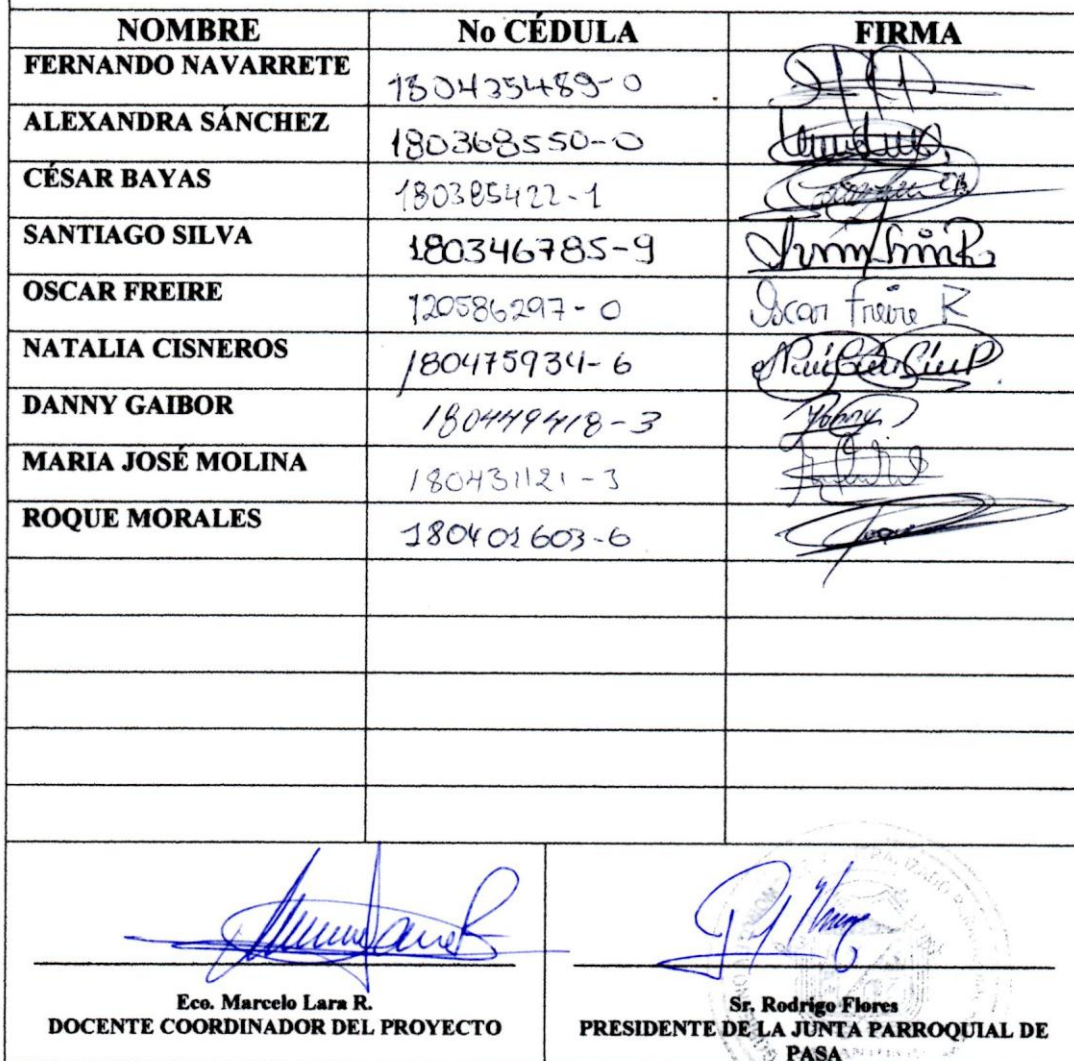 NOMBRE No CÉDULA FIRMA
FERNANDO NAVARRETE 180435489-0
ALEXANDRA SÁNCHEZ 180368550-0
CÉSAR BAYAS 180385422-1
SANTIAGO SILVA 180346785-9
OSCAR FREIRE 120586297-0 Oscar Freire R
NATALIA CISNEROS 180475934-6
DANNY GAIBOR 180449418-3
MARIA JOSÉ MOLINA 180431121-3
ROQUE MORALES 180401603-6
Eco. Marcelo Lara R.
DOCENTE COORDINADOR DEL PROYECTO
Sr. Rodrigo Flores
PRESIDENTE DE LA JUNTA PARROQUIAL DE
PASA